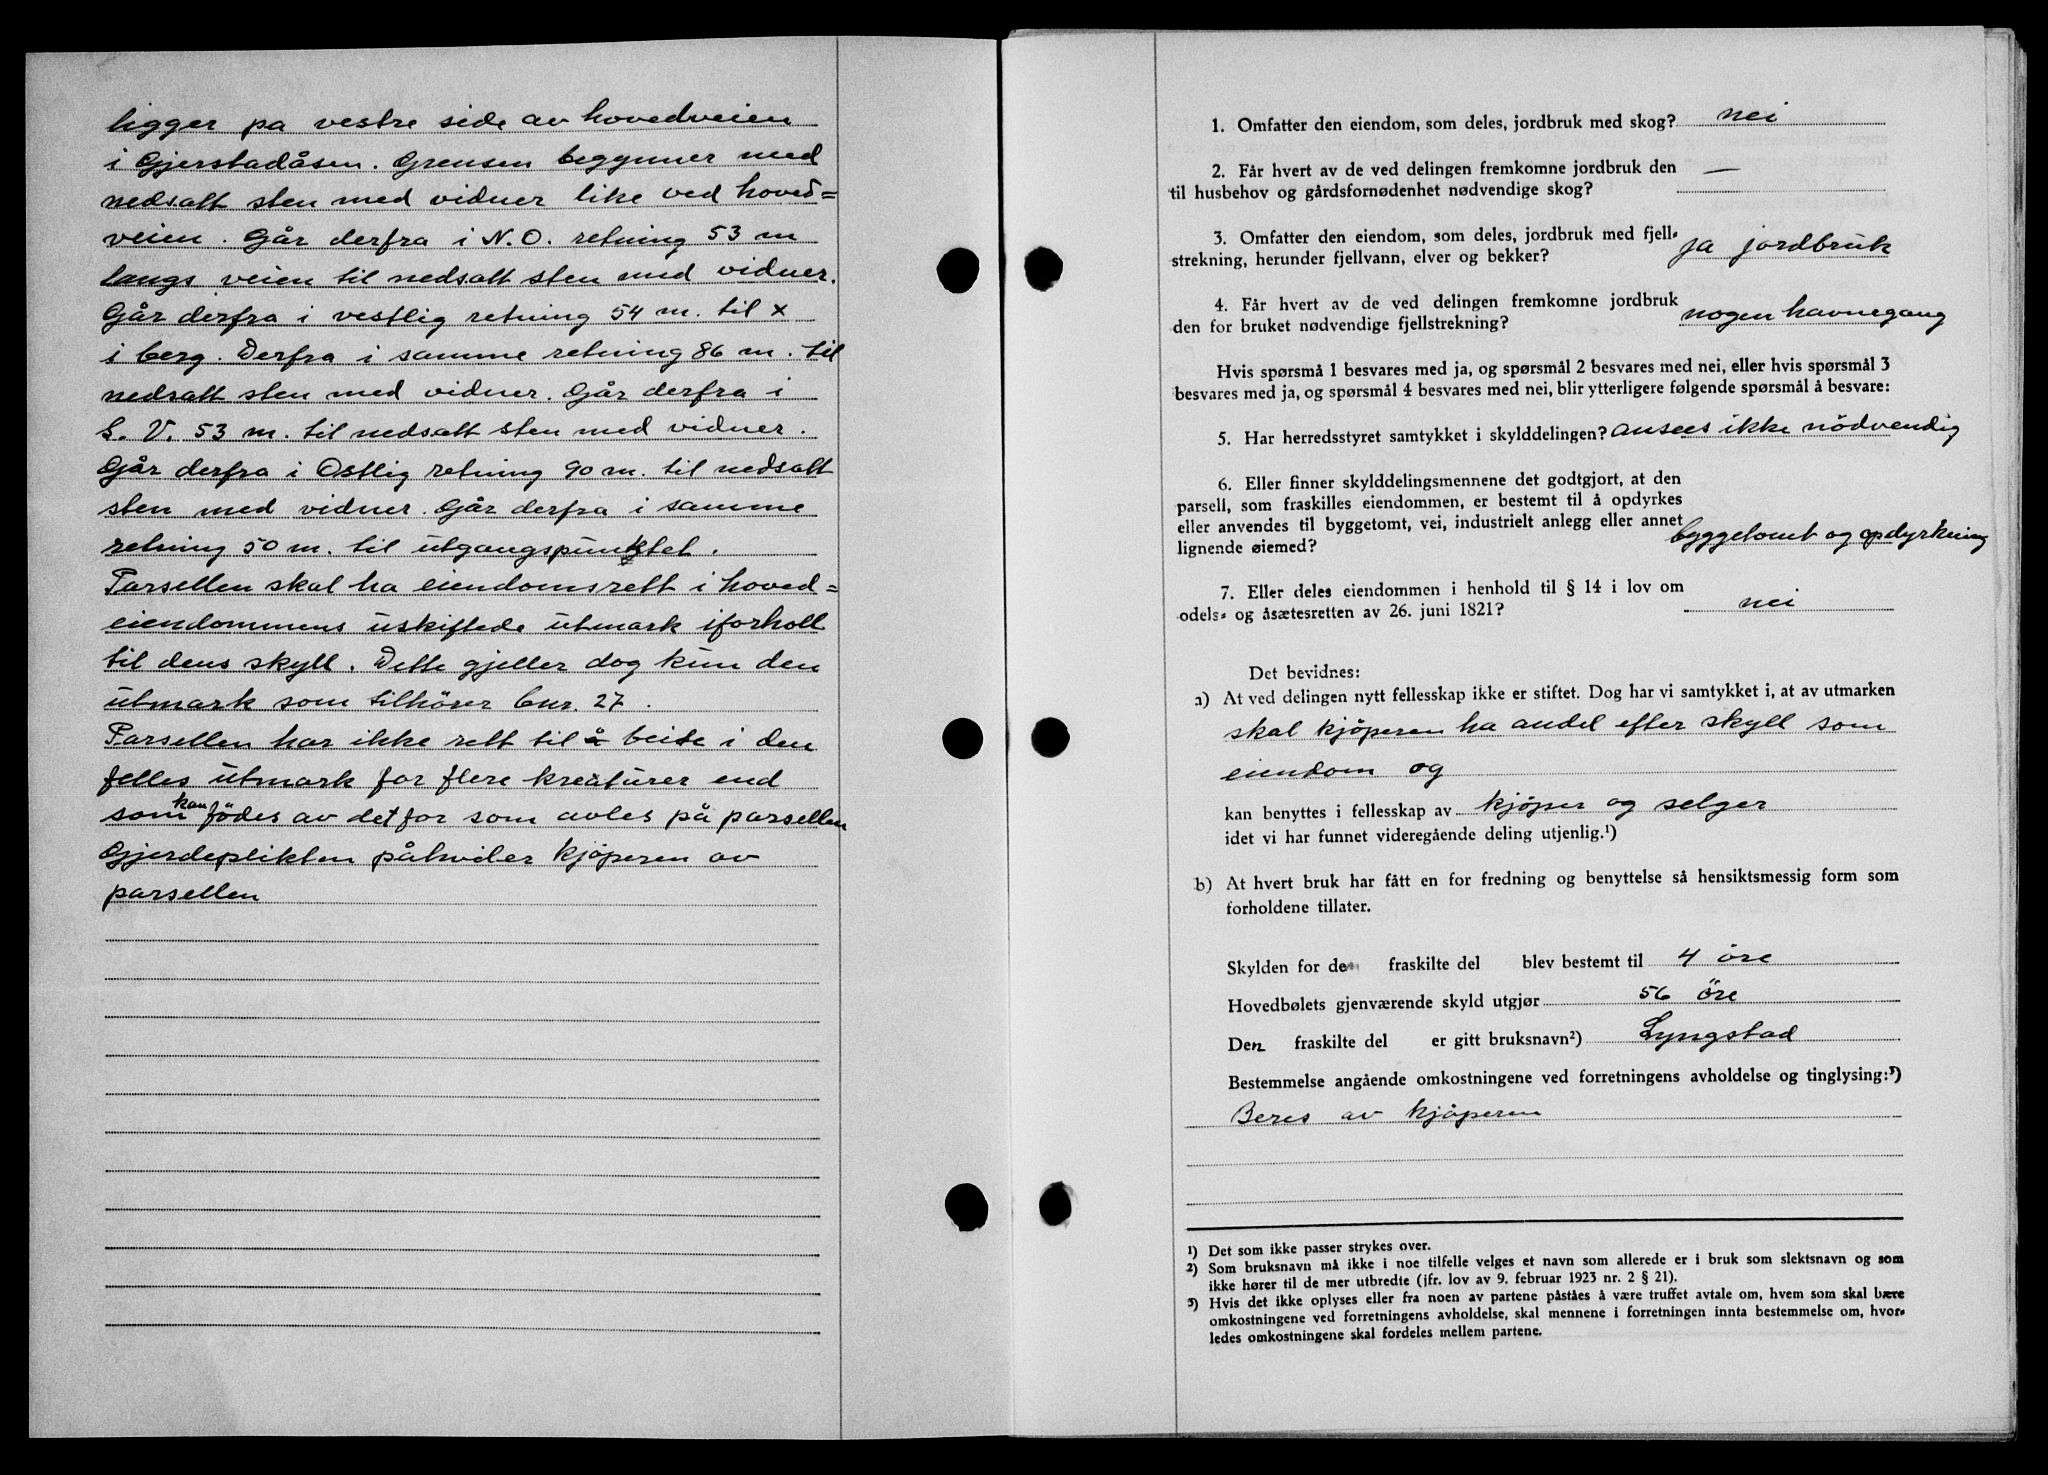 ligger pa vestre side av hovedveien
i Gjerstadåsen. Grensen begynner med
nedsatt sten med vidner like ved hoved=
veien. Går derfra i N.O. retning 53 m
langs veien til nedsatt sten med vidner.
Går derfra i vestlig retning 54 m. til x
i berg. Derfra i samme retning 86 m. til
nedsatt sten med vidner. Går derfra i
S. V. 53 m. til nedsatt sten med vidner.
Går derfra i Ostlig retning 90 m. til nedsatt
sten med vidner. Går derfra i samme
retning 50 m. til utgangspunktet.
Parsellen skal ha eiendomsrett i hoved=
eiendommens uskiftede utmark iforholl
til dens skyll. Dette gjeller dog kun den
utmark som tilhörer bnr. 27.
Parsellen har ikke rett til å beite i den
felles utmark for flere kreaturer end
som kan födes av det for som avles på parsellen
Gjerdeplikten påhviler kjöperen av
parsellen
1. Omfatter den eiendom, som deles, jordbruk med skog? nei
2. Får hvert av de ved delingen fremkomne jordbruk den
til husbehov og gårdsfornødenhet nødvendige skog? —
3. Omfatter den eiendom, som deles, jordbruk med fjell-
strekning, herunder fjellvann, elver og bekker? ja jordbruk
4. Får hvert av de ved delingen fremkomne jordbruk
den for bruket nødvendige fjellstrekning? nogen havnegang
Hvis spørsmå 1 besvares med ja, og spørsmål 2 besvares med nei, eller hvis spørsmål 3
besvares med ja, og spørsmål 4 besvares med nei, blir ytterligere følgende spørsmål å besvare:
5. Har herredsstyret samtykket i skylddelingen? ansees ikke nödvendig
6. Eller finner skylddelingsmennene det godtgjort, at den
parsell, som fraskilles eiendommen, er bestemt til å opdyrkes
eller anvendes til byggetomt, vei, industrielt anlegg eller annet
lignende øiemed? byggetomt og opdyrkning
7. Eller deles eiendommen i henhold til § 14 i lov om
odels- og åsætesretten av 26. juni 1821? nei
Det bevidnes:
a) At ved delingen nytt fellesskap ikke er stiftet. Dog har vi samtykket i, at av utmarken
skal kjöperen ha andel efter skyll som
eiendom og
kan benyttes i fellesskap av kjöper og selger
idet vi har funnet videregående deling utjenlig.¹)
b) At hvert bruk har fått en for fredning og benyttelse så hensiktsmessig form som
forholdene tillater.
Skylden for de fraskilte del blev bestemt til 4 öre
Hovedbølets gjenværende skyld utgjør 56 öre
Den fraskilte del er gitt bruksnavn²) Lyngstad
Bestemmelse angående omkostningene ved forretningens avholdelse og tinglysing:³)
Beres av kjöperen
¹) Det som ikke passer strykes over.
²) Som bruksnavn må ikke i noe tilfelle velges et navn som allerede er i bruk som slektsnavn og som
ikke hører til de mer utbredte (jfr. lov av 9. februar 1923 nr. 2 § 21).
³) Hvis det ikke oplyses eller fra noen av partene påstås å være truffet avtale om, hvem som skal bære
omkostningene ved forretningens avholdelse, skal mennene i forretningen innta bestemmelse om, hvor-
ledes omkostningene skal fordeles mellem partene.